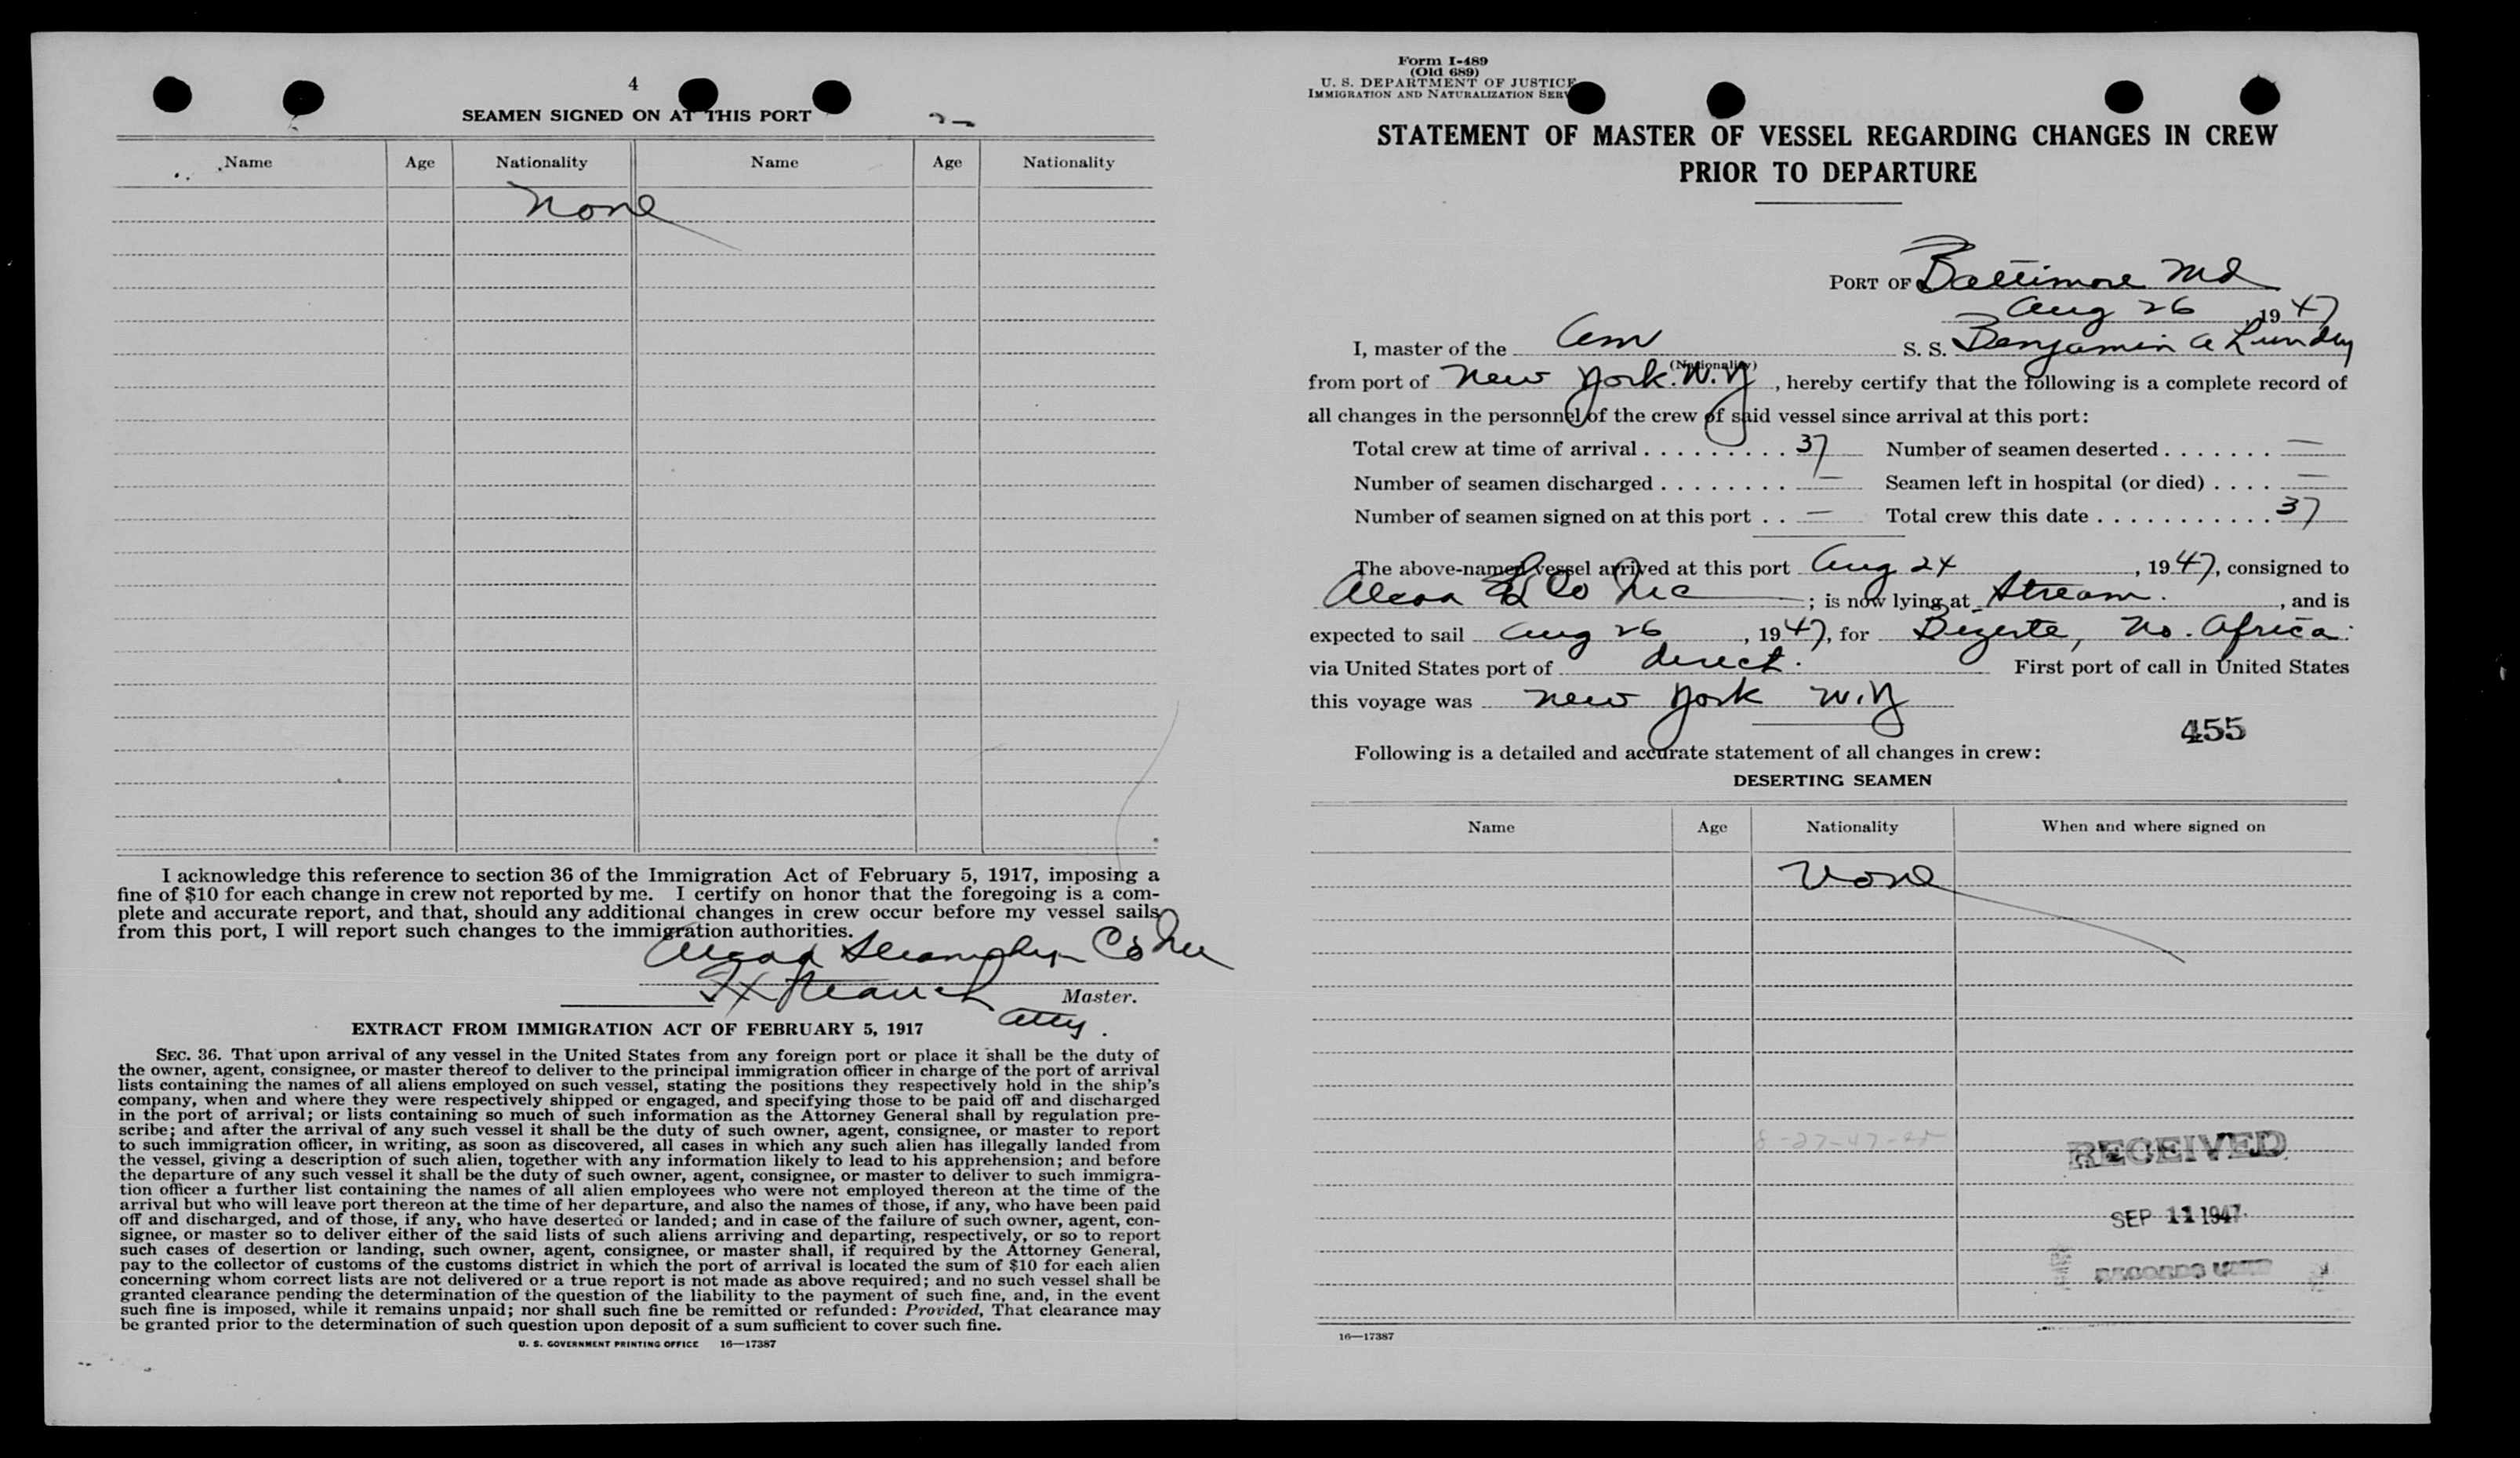 4
SEAMEN SIGNED ON AT THIS PORT
Name Age Nationality Name Age Nationality
None
I acknowledge this reference to section 36 of the Immigration Act of February 5, 1917, imposing a
fine of $10 for each change in crew not reported by me. I certify on honor that the foregoing is a com-
plete and accurate report, and that, should any additional changes in crew occur before my vessel sails
from this port, I will report such changes to the immigration authorities.
Alcoa Steamship Co Inc
Master.
Atty.
EXTRACT FROM IMMIGRATION ACT OF FEBRUARY 5, 1917
SEC. 36. That upon arrival of any vessel in the United States from any foreign port or place it shall be the duty of
the owner, agent, consignee, or master thereof to deliver to the principal immigration officer in charge of the port of arrival
lists containing the names of all aliens employed on such vessel, stating the positions they respectively hold in the ship's
company, when and where they were respectively shipped or engaged, and specifying those to be paid off and discharged
in the port of arrival; or lists containing so much of such information as the Attorney General shall by regulation pre-
scribe; and after the arrival of any such vessel it shall be the duty of such owner, agent, consignee, or master to report
to such immigration officer, in writing, as soon as discovered, all cases in which any such alien has illegally landed from
the vessel, giving a description of such alien, together with any information likely to lead to his apprehension; and before
the departure of any such vessel it shall be the duty of such owner, agent, consignee, or master to deliver to such immigra-
tion officer a further list containing the names of all alien employees who were not employed thereon at the time of the
arrival but who will leave port thereon at the time of her departure, and also the names of those, if any, who have been paid
off and discharged, and of those, if any, who have deserted or landed; and in case of the failure of such owner, agent, con-
signee, or master so to deliver either of the said lists of such aliens arriving and departing, respectively, or so to report
such cases of desertion or landing, such owner, agent, consignee, or master shall, if required by the Attorney General,
pay to the collector of customs of the customs district in which the port of arrival is located the sum of $10 for each alien
concerning whom correct lists are not delivered or a true report is not made as above required; and no such vessel shall be
granted clearance pending the determination of the question of the liability to the payment of such fine, and, in the event
such fine is imposed, while it remains unpaid; nor shall such fine be remitted or refunded: Provided, That clearance may
be granted prior to the determination of such question upon deposit of a sum sufficient to cover such fine.
U. S. GOVERNMENT PRINTING OFFICE 16—17387
Form I-489
(Old 689)
U. S. DEPARTMENT OF JUSTICE
IMMIGRATION AND NATURALIZATION SERV
STATEMENT OF MASTER OF VESSEL REGARDING CHANGES IN CREW
PRIOR TO DEPARTURE
PORT OF Baltimore Md
Aug 26, 1947
I, master of the Am S. S. Benjamin A Lundy
(Nationality)
from port of New York. N.Y, hereby certify that the following is a complete record of
all changes in the personnel of the crew of said vessel since arrival at this port:
Total crew at time of arrival . . . . . . . . . 37 Number of seamen deserted . . . . . . . —
Number of seamen discharged . . . . . . . . — Seamen left in hospital (or died) . . . . —
Number of seamen signed on at this port . . — Total crew this date . . . . . . . . . . . 37
The above-named vessel arrived at this port Aug 24, 1947, consigned to
Alcoa SS Co Inc; is now lying at Stream., and is
expected to sail Aug 26, 1947, for Bizerte, No. Africa.
via United States port of direct. First port of call in United States
this voyage was New York N.Y
455
Following is a detailed and accurate statement of all changes in crew:
DESERTING SEAMEN
Name Age Nationality When and where signed on
None
RECEIVED
SEP 11 1947
RECORDS UNIT
16—17387